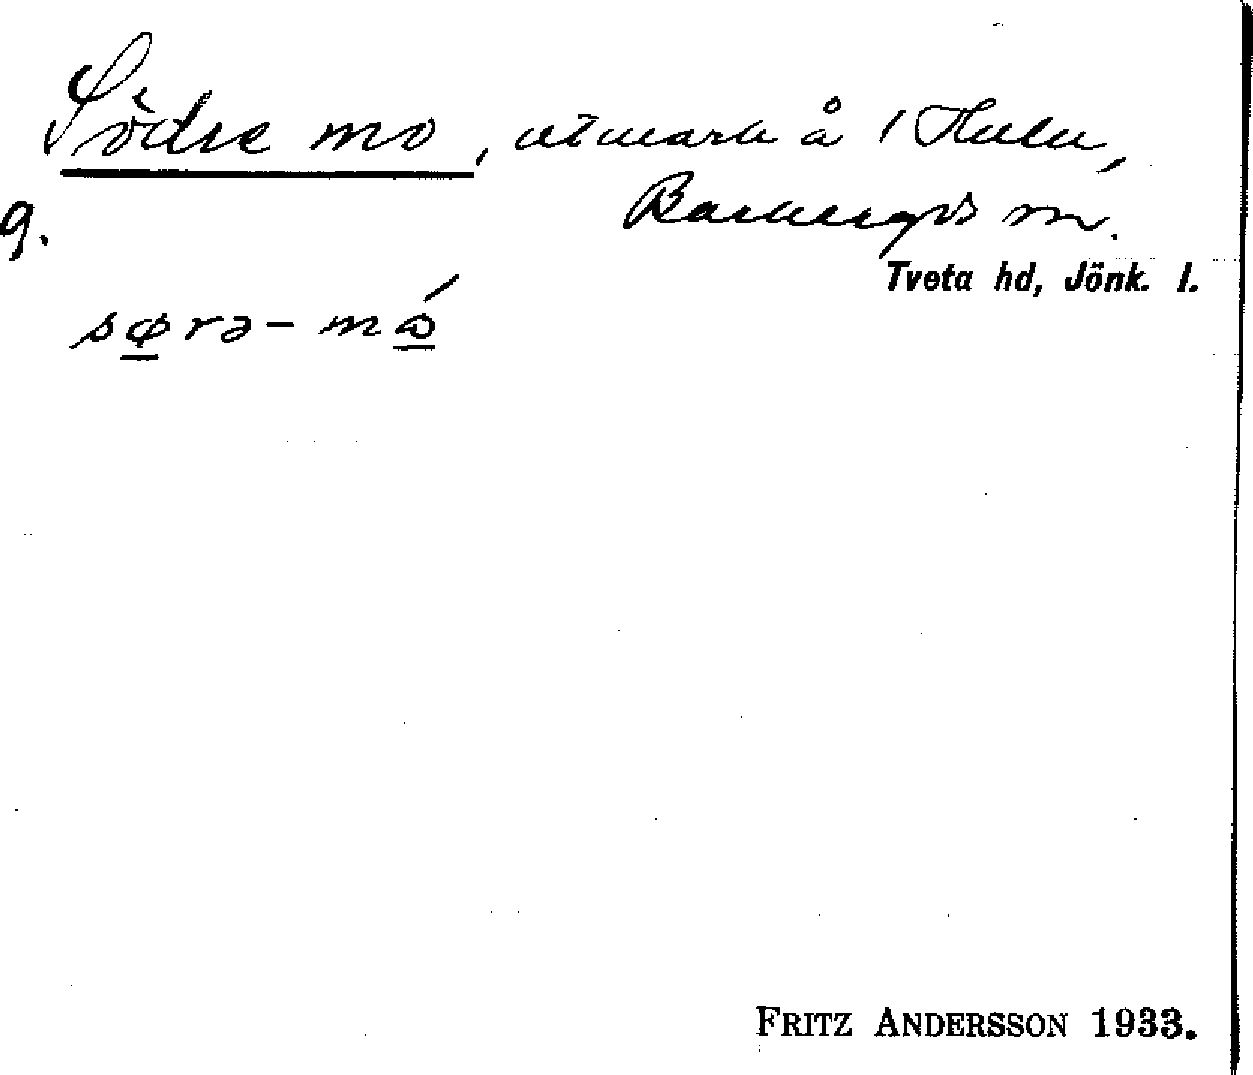 Södre mo, utmark å 1 Hulu,
Barkeryds sn.
9.
Tveta hd, Jönk. l.
sørə-mó
FRITZ ANDERSSON 1933.